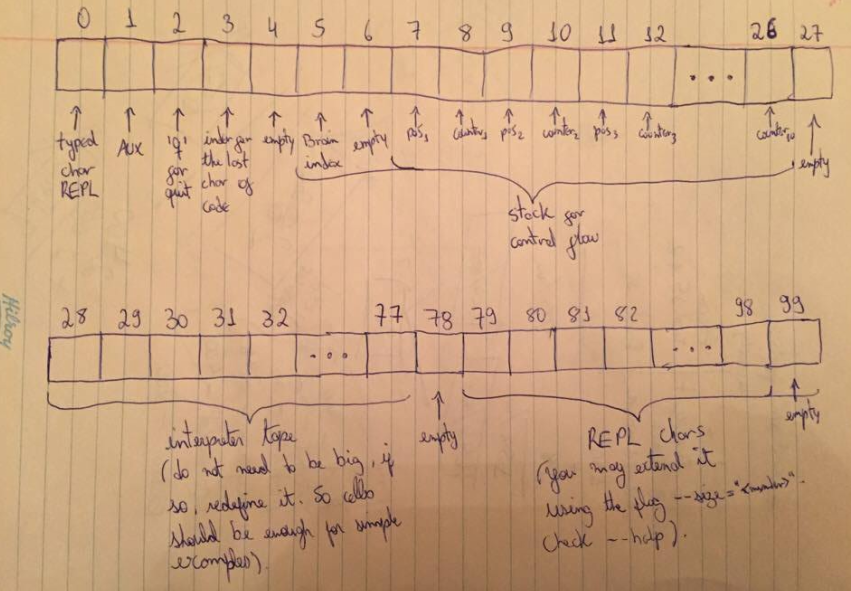 0 1 2 3 4 5 6 7 8 9 10 11 12 26 27
...
typed char REPL
AUX
'q' for quit
index for the last char of code
empty
Brain index
empty
pos₁
counter₁
pos₂
counter₂
pos₃
counter₃
counter₁₀
empty
stack for
control flow
Hilroy
28 29 30 31 32 77 78 79 80 81 82 98 99
... ...
interpreter tape
(do not need to be big, if
so, redefine it. 50 cells
should be enough for simple
examples).
empty
REPL chars
(you may extend it
using the flag --size="<number>".
Check --help).
empty